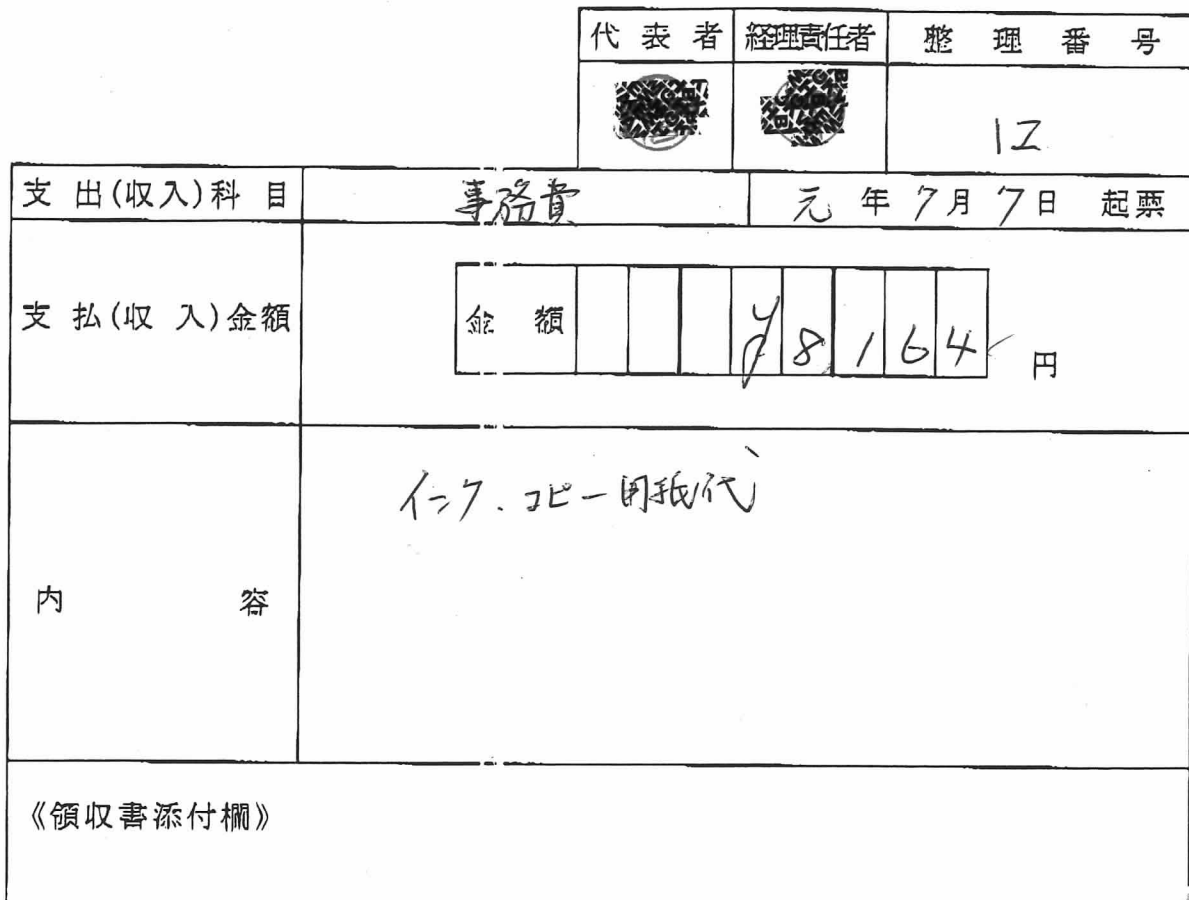 代表者 経理責任者 整理番号
12
支出(収入)科目 事務費 元年7月7日 起票
支払(収入)金額 金額 ¥8164 円
インク、コピー用紙代
内容
《領収書添付欄》